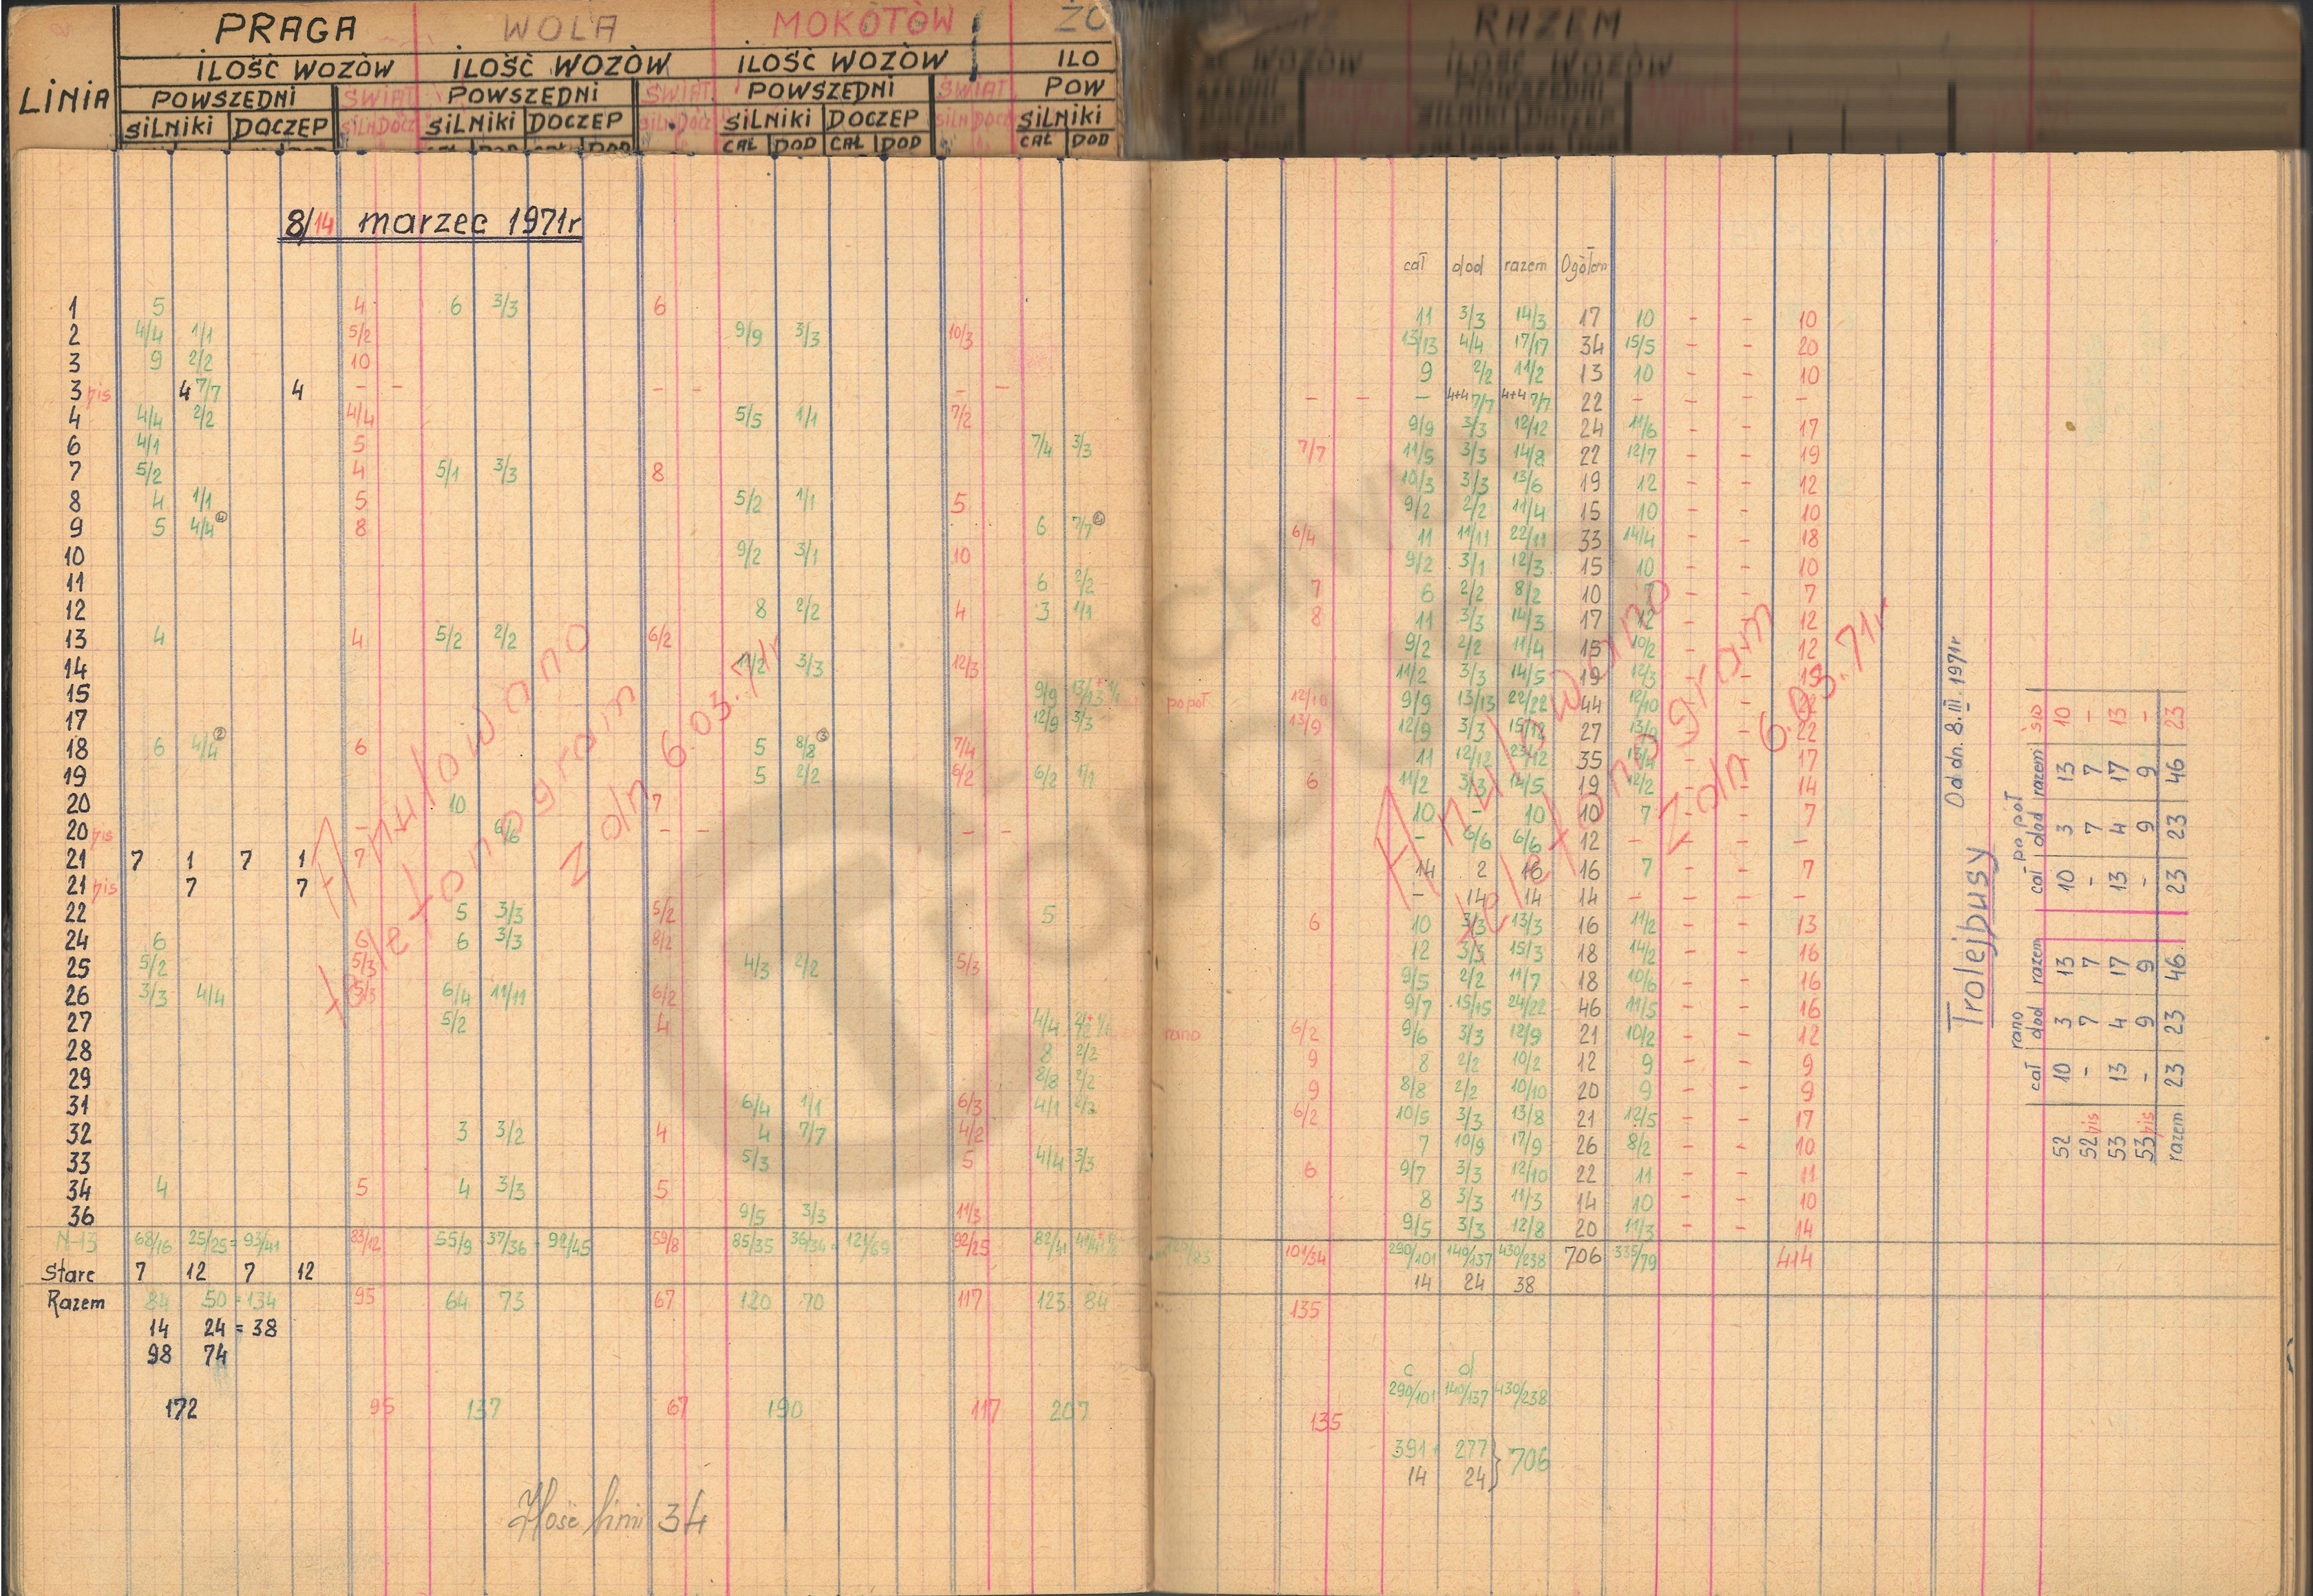 PRAGA WOLA MOKOTÓW ŻO RAZEM
LINIA ILOŚĆ WOZÓW ILOŚĆ WOZÓW ILOŚĆ WOZÓW ILO WOZÓW ILOŚĆ WOZÓW
POWSZEDNI ŚWIĄT POWSZEDNI ŚWIĄT POWSZEDNI ŚWIĄT POW POWSZEDNI
SILNIKI DOCZEP SILN DOCZ SILNIKI DOCZEP SILN DOCZ SILNIKI DOCZEP SILN DOCZ SILNIKI SILNIKI DOCZEP
CAŁ DOD CAŁ DOD CAŁ DOD
8/14 marzec 1971r
cał dod razem Ogółem
1 5 4 6 3/3 6 11 3/3 14/3 17 10 - - 10
2 4/4 1/1 5/2 9/9 3/3 10/3 13/13 4/4 17/17 34 15/5 - - 20
3 9 2/2 10 9 2/2 11/2 13 10 - - 10
3 bis 4 7/7 4 - - - - - - - - - 4+4 7/7 4+4 7/7 22 - - - -
4 4/4 2/2 4/4 5/5 1/1 7/2 9/9 3/3 12/12 24 11/6 - - 17
6 4/1 5 7/4 3/3 7/7 11/5 3/3 14/8 22 12/7 - - 19
7 5/2 4 5/1 3/3 8 10/3 3/3 13/6 19 12 - - 12
8 4 1/1 5 5/2 1/1 5 9/2 2/2 11/4 15 10 - - 10
9 5 4/4 8 6 7/7 6/4 11 11/11 22/11 33 14/4 - - 18
10 9/2 3/1 10 9/2 3/1 12/3 15 10 - - 10
11 6 2/2 7 6 2/2 8/2 10 7 - - 7
12 8 2/2 4 3 1/1 8 11 3/3 14/3 17 12 - - 12
13 4 4 5/2 2/2 6/2 9/2 2/2 11/4 15 10/2 - - 12
14 11/2 3/3 12/3 11/2 3/3 14/5 19 12/3 - - 15
15 9/9 13/13 + 1/1 popoł 12/10 9/9 13/13 22/22 44 12/10 - - 22
17 12/9 3/3 13/9 12/9 3/3 15/12 27 13/9 - - 22
18 6 4/4 ② 6 5 8/8 ③ 7/4 11 12/12 23/12 35 13/4 - - 17
19 5 2/2 6/2 6/2 1/1 6 11/2 3/3 14/5 19 12/2 - - 14
20 10 7 10 - 10 10 7 - - 7
20 bis - 6/6 - - - - - 6/6 6/6 12 - - - -
21 7 1 7 1 7 14 2 16 16 7 - - 7
21 bis 7 7 - 14 14 14 - - - -
22 5 3/3 5/2 5 6 10 3/3 13/3 16 11/2 - - 13
24 6 6 6 3/3 8/2 12 3/3 15/3 18 14/2 - - 16
25 5/2 5/3 4/3 2/2 5/3 9/5 2/2 11/7 18 10/6 - - 16
26 3/3 4/4 5/3 6/4 11/11 6/2 9/7 15/15 24/22 46 11/5 - - 16
27 5/2 4 4/4 rano 6/2 9/6 3/3 12/9 21 10/2 - - 12
28 8 2/2 9 8 2/2 10/2 12 9 - - 9
29 8/8 2/2 9 8/8 2/2 10/10 20 9 - - 9
31 6/4 1/1 6/3 4/1 2/2 6/2 10/5 3/3 13/8 21 12/5 - - 17
32 3 3/2 4 4 7/7 4/2 7 10/9 17/9 26 8/2 - - 10
33 5/3 5 4/4 3/3 6 9/7 3/3 12/10 22 11 - - 11
34 4 5 4 3/3 5 8 3/3 11/3 14 10 - - 10
36 9/5 3/3 11/3 9/5 3/3 12/8 20 11/3 - - 14
N-13 68/16 25/25 = 93/41 83/12 55/9 37/36 = 92/45 59/8 85/35 36/34 = 121/69 92/25 82/41 101/34 290/101 140/137 430/238 706 335/79 414
Stare 7 12 7 12 14 24 38
Razem 84 50 = 134 95 64 73 67 120 70 117 123 84 135
14 24 = 38
98 74
172 95 137 67 190 117 207 135
c d
290/101 140/137 430/238
391 277 } 706
14 24
Anulowano
telefonogram
z dn 6.03.71r
Anulowano
telefonogram
z dn 6.03.71r
Ilość linii 34
Trolejbusy Od dn. 8.III.1971r
rano po poł
cał dod razem cał dod razem św
52 10 3 13 10 3 13 10
52 bis - 7 7 - 7 7 -
53 13 4 17 13 4 17 13
53 bis - 9 9 - 9 9 -
razem 23 23 46 23 23 46 23